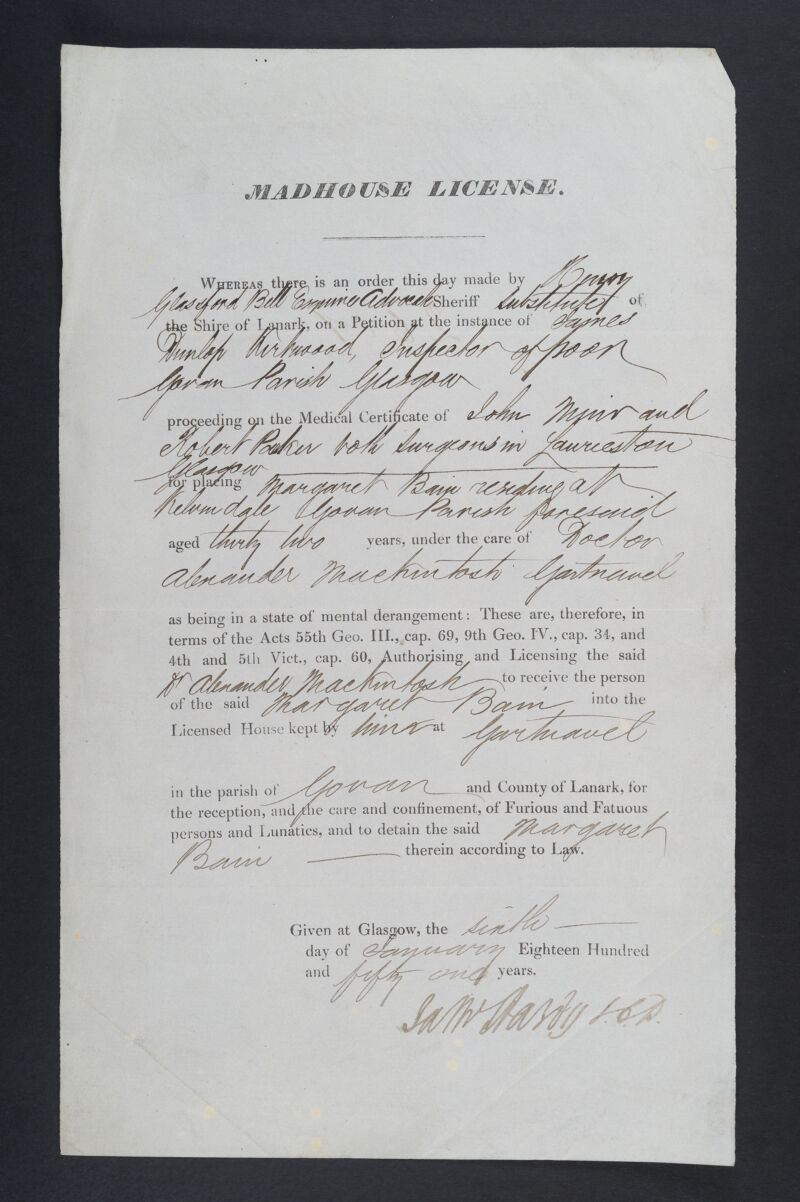 MADHOUSE LICENSE.
WHEREAS there is an order this day made by Henry
Glassford Bell Esquire Advocate Sheriff Substitute of
the Shire of Lanark, on a Petition at the instance of James
Dunlop Kirkwood, Inspector of poor
Govan Parish Glasgow
proceeding on the Medical Certificate of John Muir and
Robert Parker both Surgeons in Laurieston
Glasgow
for placing Margaret Bain residing at
Kelvindale Govan Parish foresaid
aged thirty two years, under the care of Doctor
Alexander Mackintosh Gartnavel
as being in a state of mental derangement: These are, therefore, in
terms of the Acts 55th Geo. III., cap. 69, 9th Geo. IV., cap. 34, and
4th and 5th Vict., cap. 60, Authorising and Licensing the said
Dr Alexander Mackintosh to receive the person
of the said Margaret Bain into the
Licensed House kept by him at Gartnavel
in the parish of Govan and County of Lanark, for
the reception, and the care and confinement, of Furious and Fatuous
persons and Lunatics, and to detain the said Margaret
Bain therein according to Law.
Given at Glasgow, the sixth
day of January Eighteen Hundred
and fifty one years.